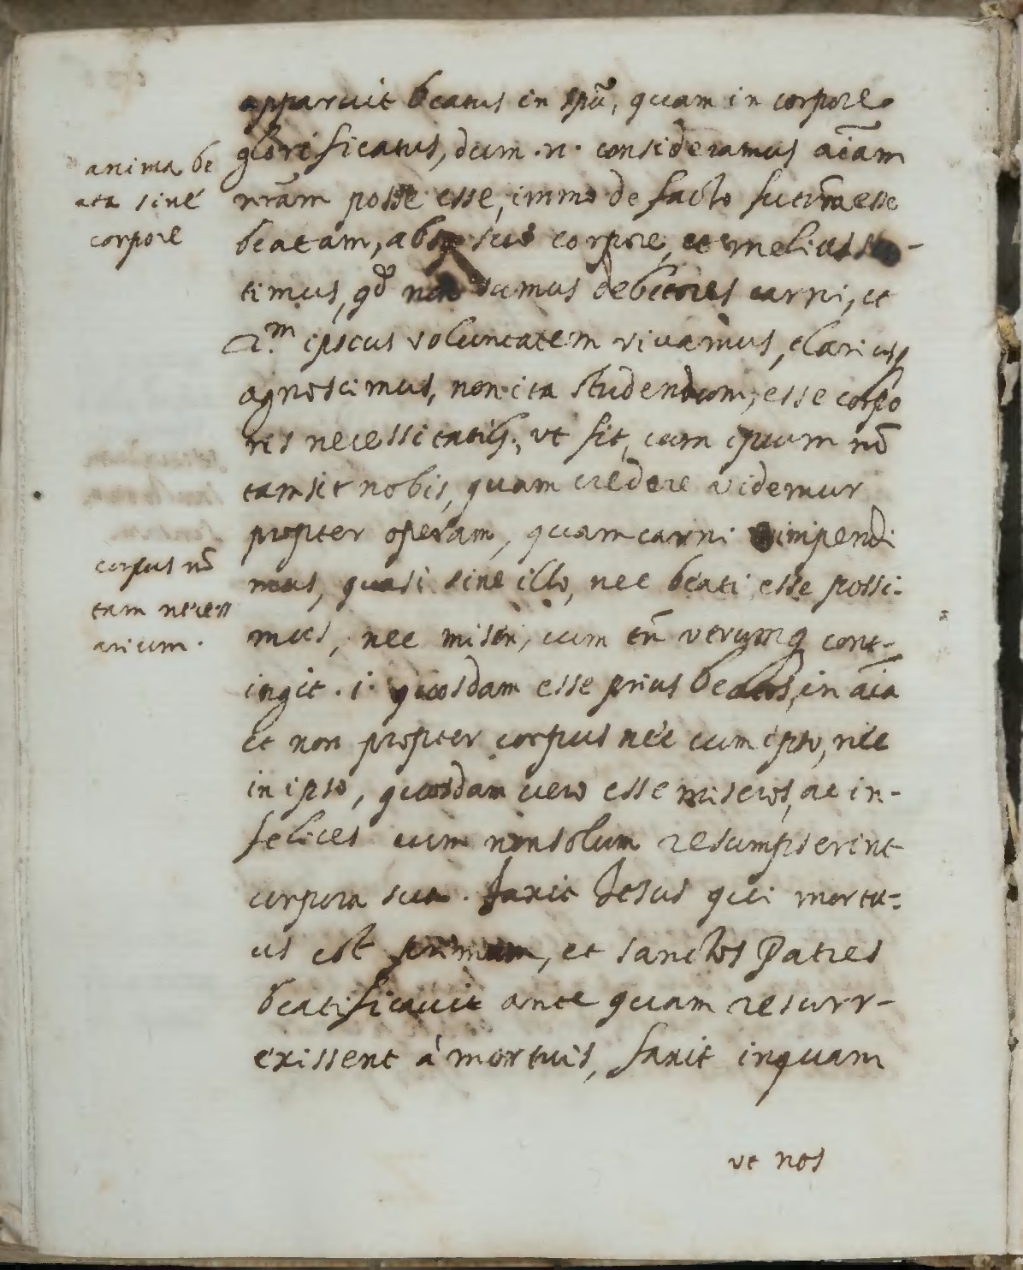 apparuit beatus in spũ, quam in corpore
glorificatus, dum .n. consideramus aĩam
nr̃am posse esse, immo de facto futurã esse
beatam, absq suo corpore, et melius
timus, qđ non sumus debitores carni, ut
ipsius voluntatem vivamus, clarius
agnoscimus, non ita studendum, esse corpo
ris necessitatib, ut sit, cum ipsum nõ
tam sit nobis, quam credere videmur
propter operam, quam carni impendi
mus, quasi sine illo, nec beati esse possi-
mus, nec miseri, cum tñ verumq cont-
ingit .i. quosdam esse prius beatos, in aĩa
et non propter corpus nec cum ipso, nec
in ipso, quosdam vero esse miseros, ac in-
felices cum non solum resumpserint
corpora sua. faxit Jesus qui mortu=
us est primum, et sanctos Patres
beatificavit ante quam resurr-
exissent à mortuis, faxit inquam
ut nos
anima be
ata sine
corpore
corpus nõ
tam necess
arium.